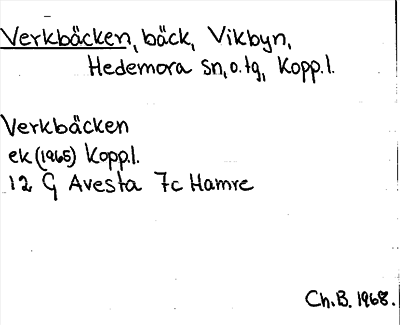 Verkbäcken, bäck, Vikbyn,
Hedemora sn, o. tg, Kopp.l.
Verkbäcken
ek (1965) Kopp.l.
12 G Avesta 7c Hamre
Ch.B. 1968.